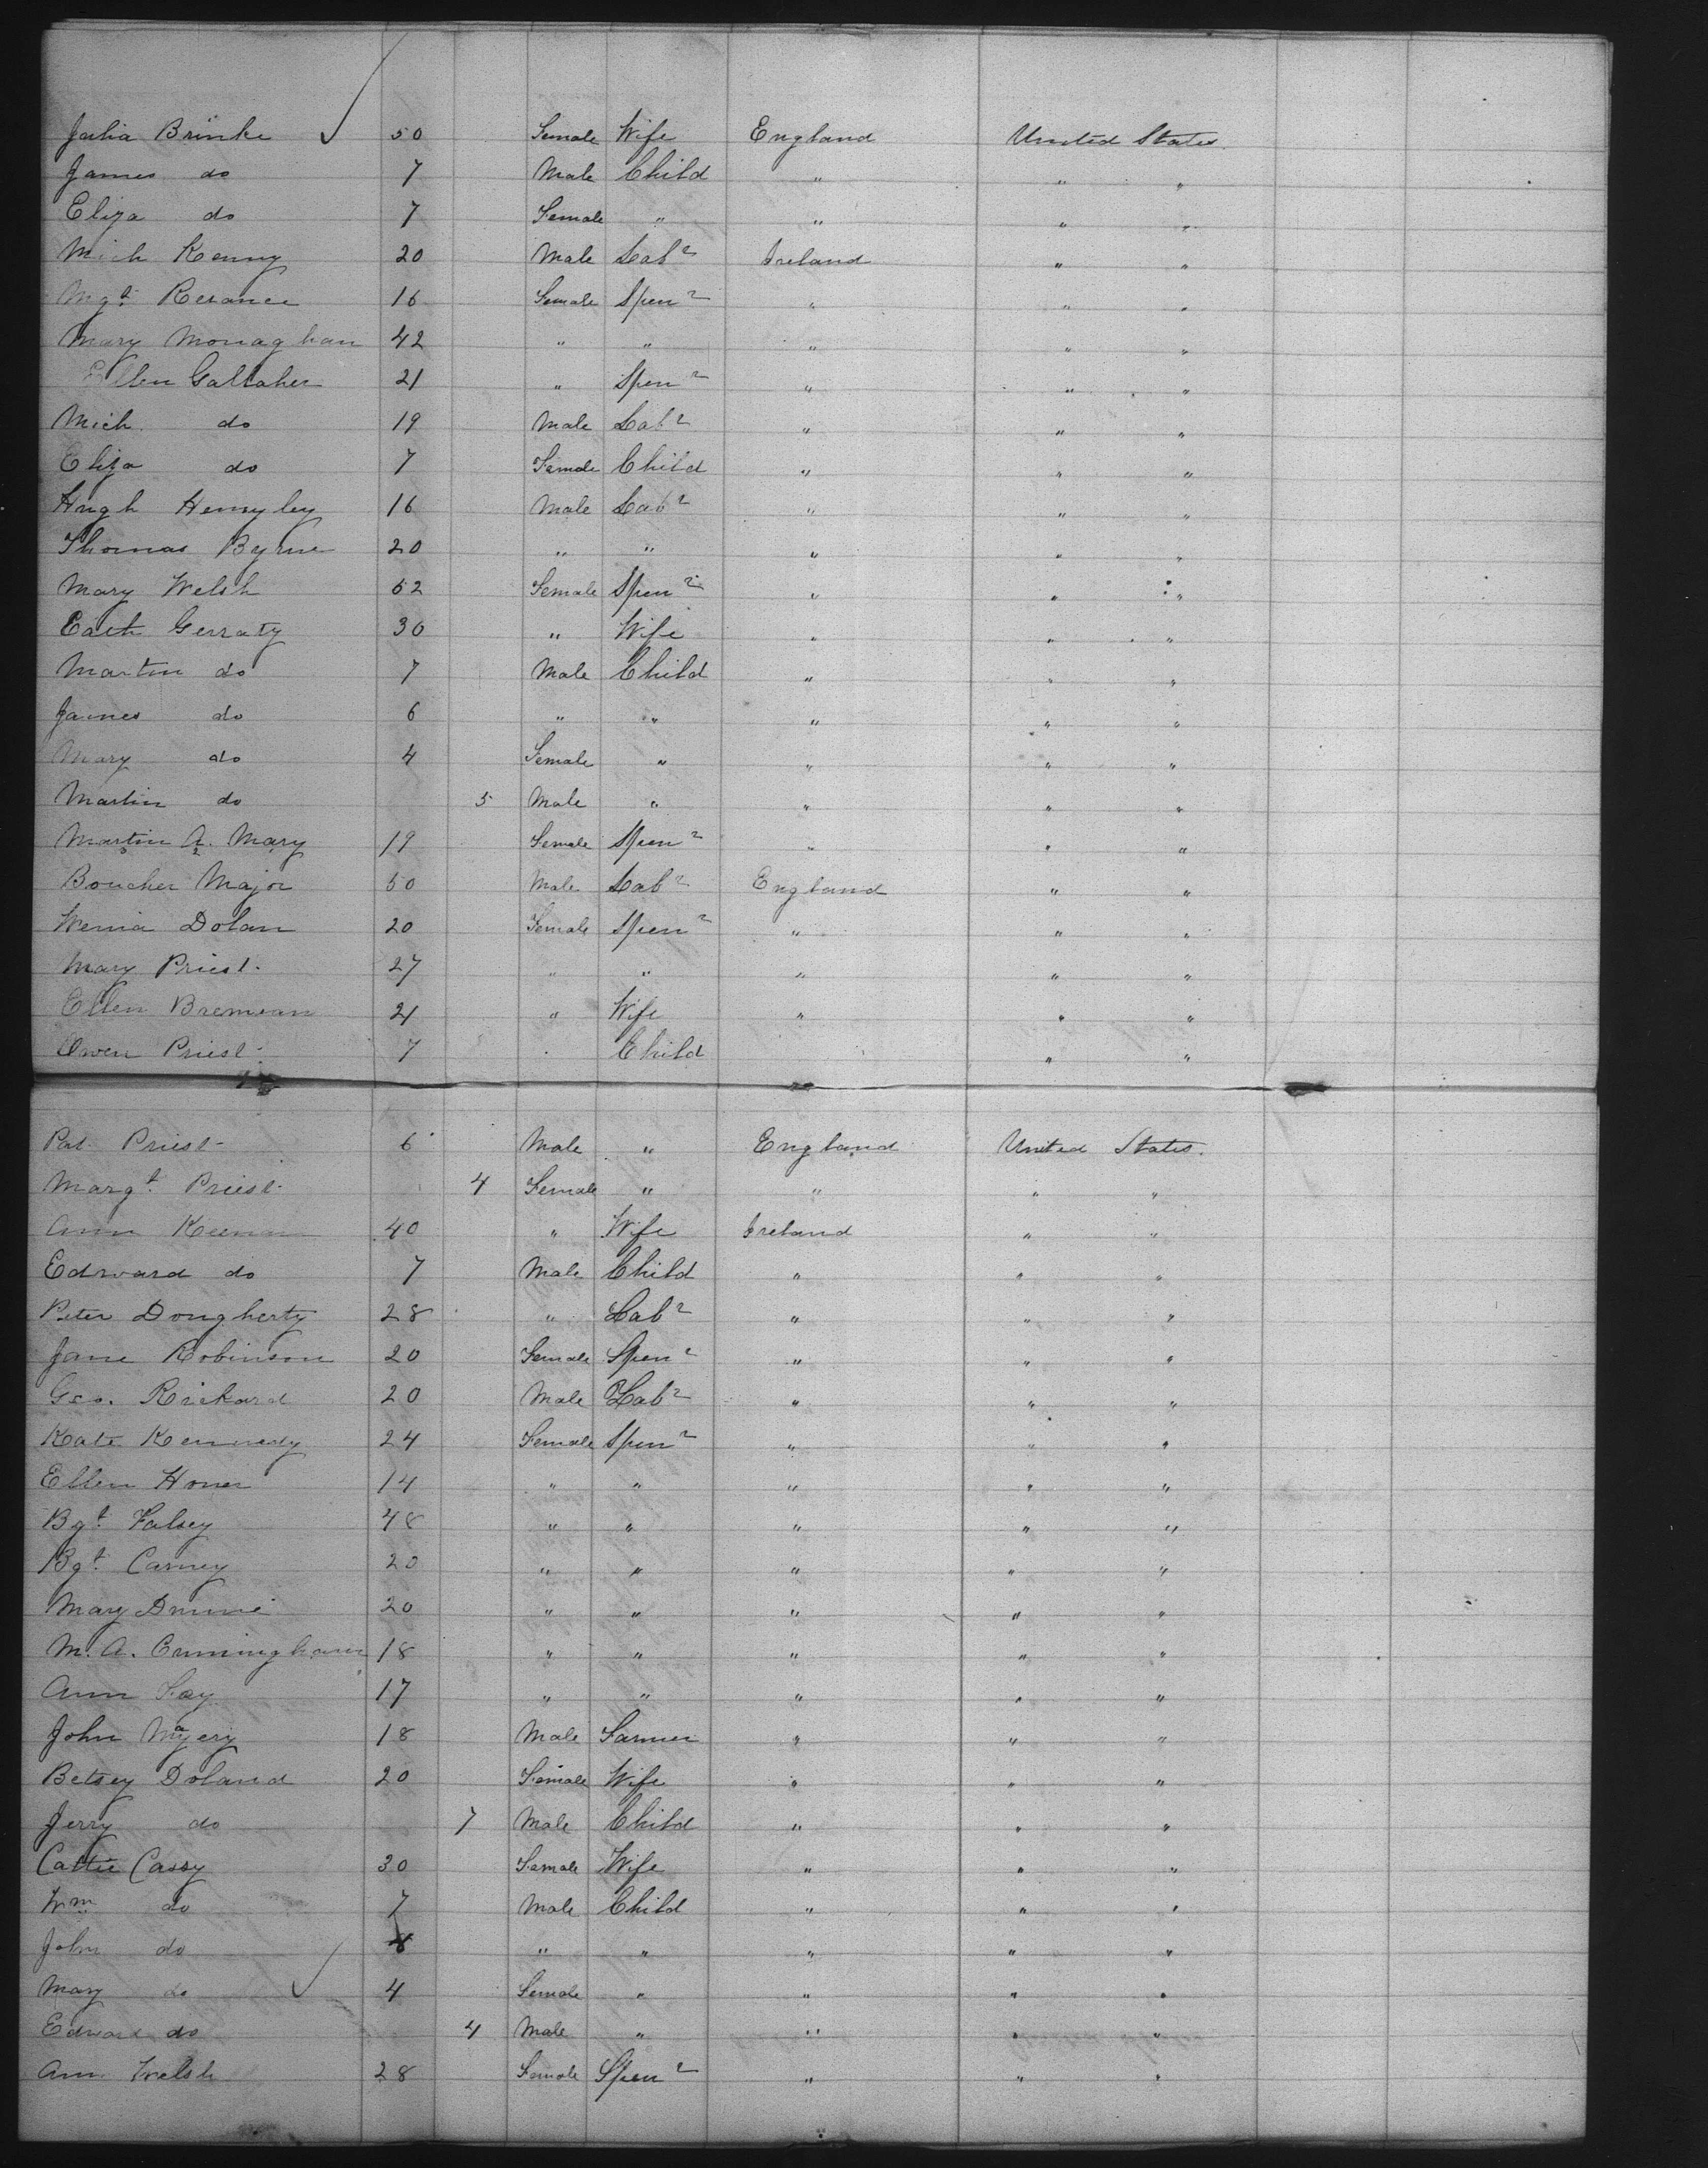 Julia Brinke 50 Female Wife England United States.
James do 7 Male Child " " "
Eliza do 7 Female " " " "
Mich Kenny 20 Male Labr Ireland " "
Mgt 16 Female Spenr " " "
Mary Monaghan 42 " " " " "
Ellen Gallaher 21 " Spenr " " "
Mich. do 19 Male Labr " " "
Eliza do 7 Female Child " " "
Hugh 16 Male Labr " " "
Thomas Byrne 20 " " " " "
Mary Welsh 52 Female Spenr " " "
Cath Gerraty 30 " Wife " " "
Martin do 7 Male Child " " "
James do 6 " " " " "
Mary do 4 Female " " " "
Martin do 5 Male " " " "
Martin A. Mary 19 Female Spenr " " "
Boucher Major 50 Male Labr England " "
Dolan 20 Female Spenr " " "
Mary Priest. 27 " " " " "
Ellen 21 " Wife " " "
Owen Priest 7 Child " "
Pat Priest 6 Male " England United States.
Margt. Priest 4 Female " " " "
Ann Keenan 40 " Wife Ireland " "
Edward do 7 Male Child " " "
Peter Dougherty 28 " Labr " " "
Jane Robinson 20 Female Spenr " " "
Geo. Rickard 20 Male Labr " " "
Kate Kennedy 24 Female Spenr " " "
Ellen 14 " " " " "
Bgt. Falsey 48 " " " " "
Bgt. Carney 20 " " " " "
Mary 20 " " " " "
M. A. Cunningham 18 " " " " "
Ann Fay 17 " " " " "
John 18 Male Farmer " " "
Betsey Doland 20 Female Wife " " "
Jerry do 7 Male Child " " "
Cattie Cassy 30 Female Wife " " "
Wm do 7 Male Child " " "
John do " " " " "
Mary do 4 Female " " " "
Edward do 4 Male " " " "
Ann Welsh 28 Female Spenr " " "